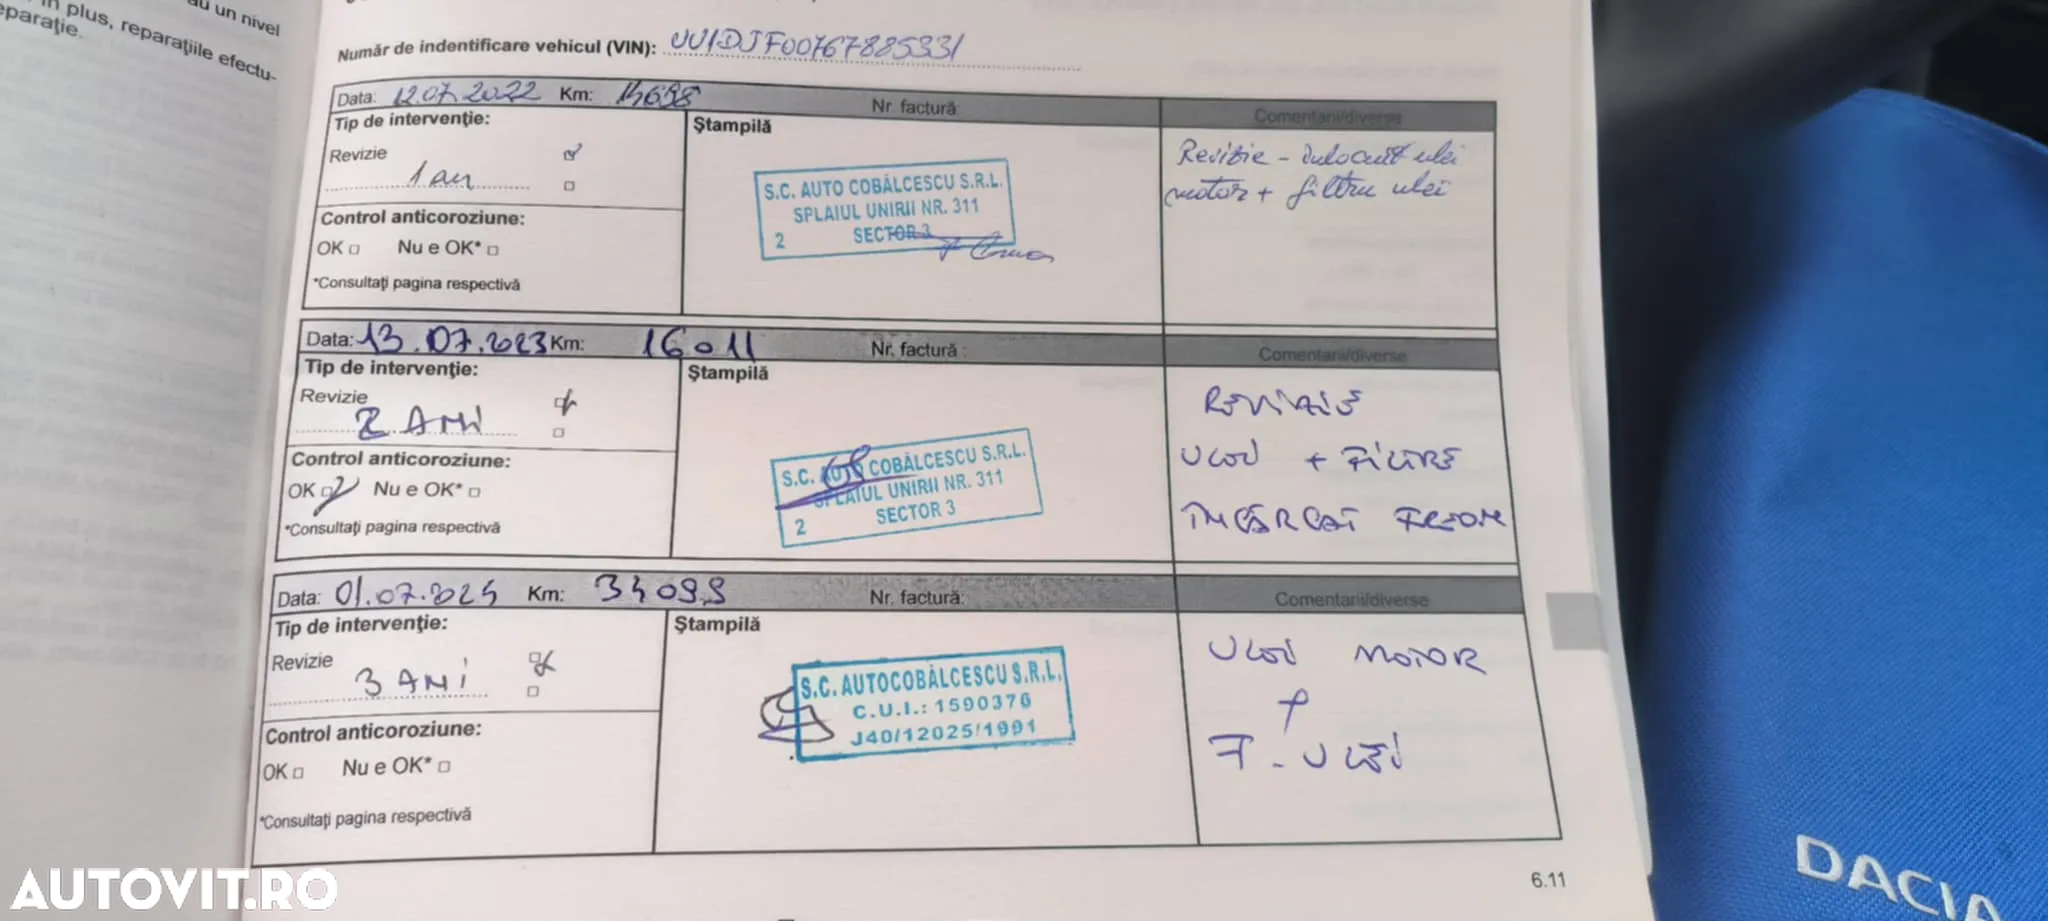 au un nivel
în plus, reparaţiile efectu-
eparaţie.
Număr de indentificare vehicul (VIN): UU1DJF00767885331
Data: 12.07.2022 Km: 14698 Nr. factură Comentarii/diverse
Tip de intervenţie:
Ştampilă
Revizie
1 an
Revizie - înlocuit ulei
motor + filtru ulei
S.C. AUTO COBĂLCESCU S.R.L.
SPLAIUL UNIRII NR. 311
2 SECTOR 3
Control anticoroziune:
OK Nu e OK*
*Consultaţi pagina respectivă
Data: 13.07.2023 Km: 16011 Nr. factură : Comentarii/diverse
Tip de intervenţie:
Ştampilă
Revizie
2 ANI
REVIZIE
ULEI + FILTRE
ÎNCĂRCAT FREON
S.C. AUTO COBĂLCESCU S.R.L.
SPLAIUL UNIRII NR. 311
2 SECTOR 3
Control anticoroziune:
OK Nu e OK*
*Consultaţi pagina respectivă
Data: 01.07.2024 Km: 34099 Nr. factură: Comentarii/diverse
Tip de intervenţie:
Ştampilă
Revizie
3 ANI
ULEI MOTOR
+
F. ULEI
S.C. AUTOCOBĂLCESCU S.R.L.
C.U.I.: 1590376
J40/12025/1991
Control anticoroziune:
OK Nu e OK*
*Consultaţi pagina respectivă
6.11
DACIA
AUTOVIT.RO